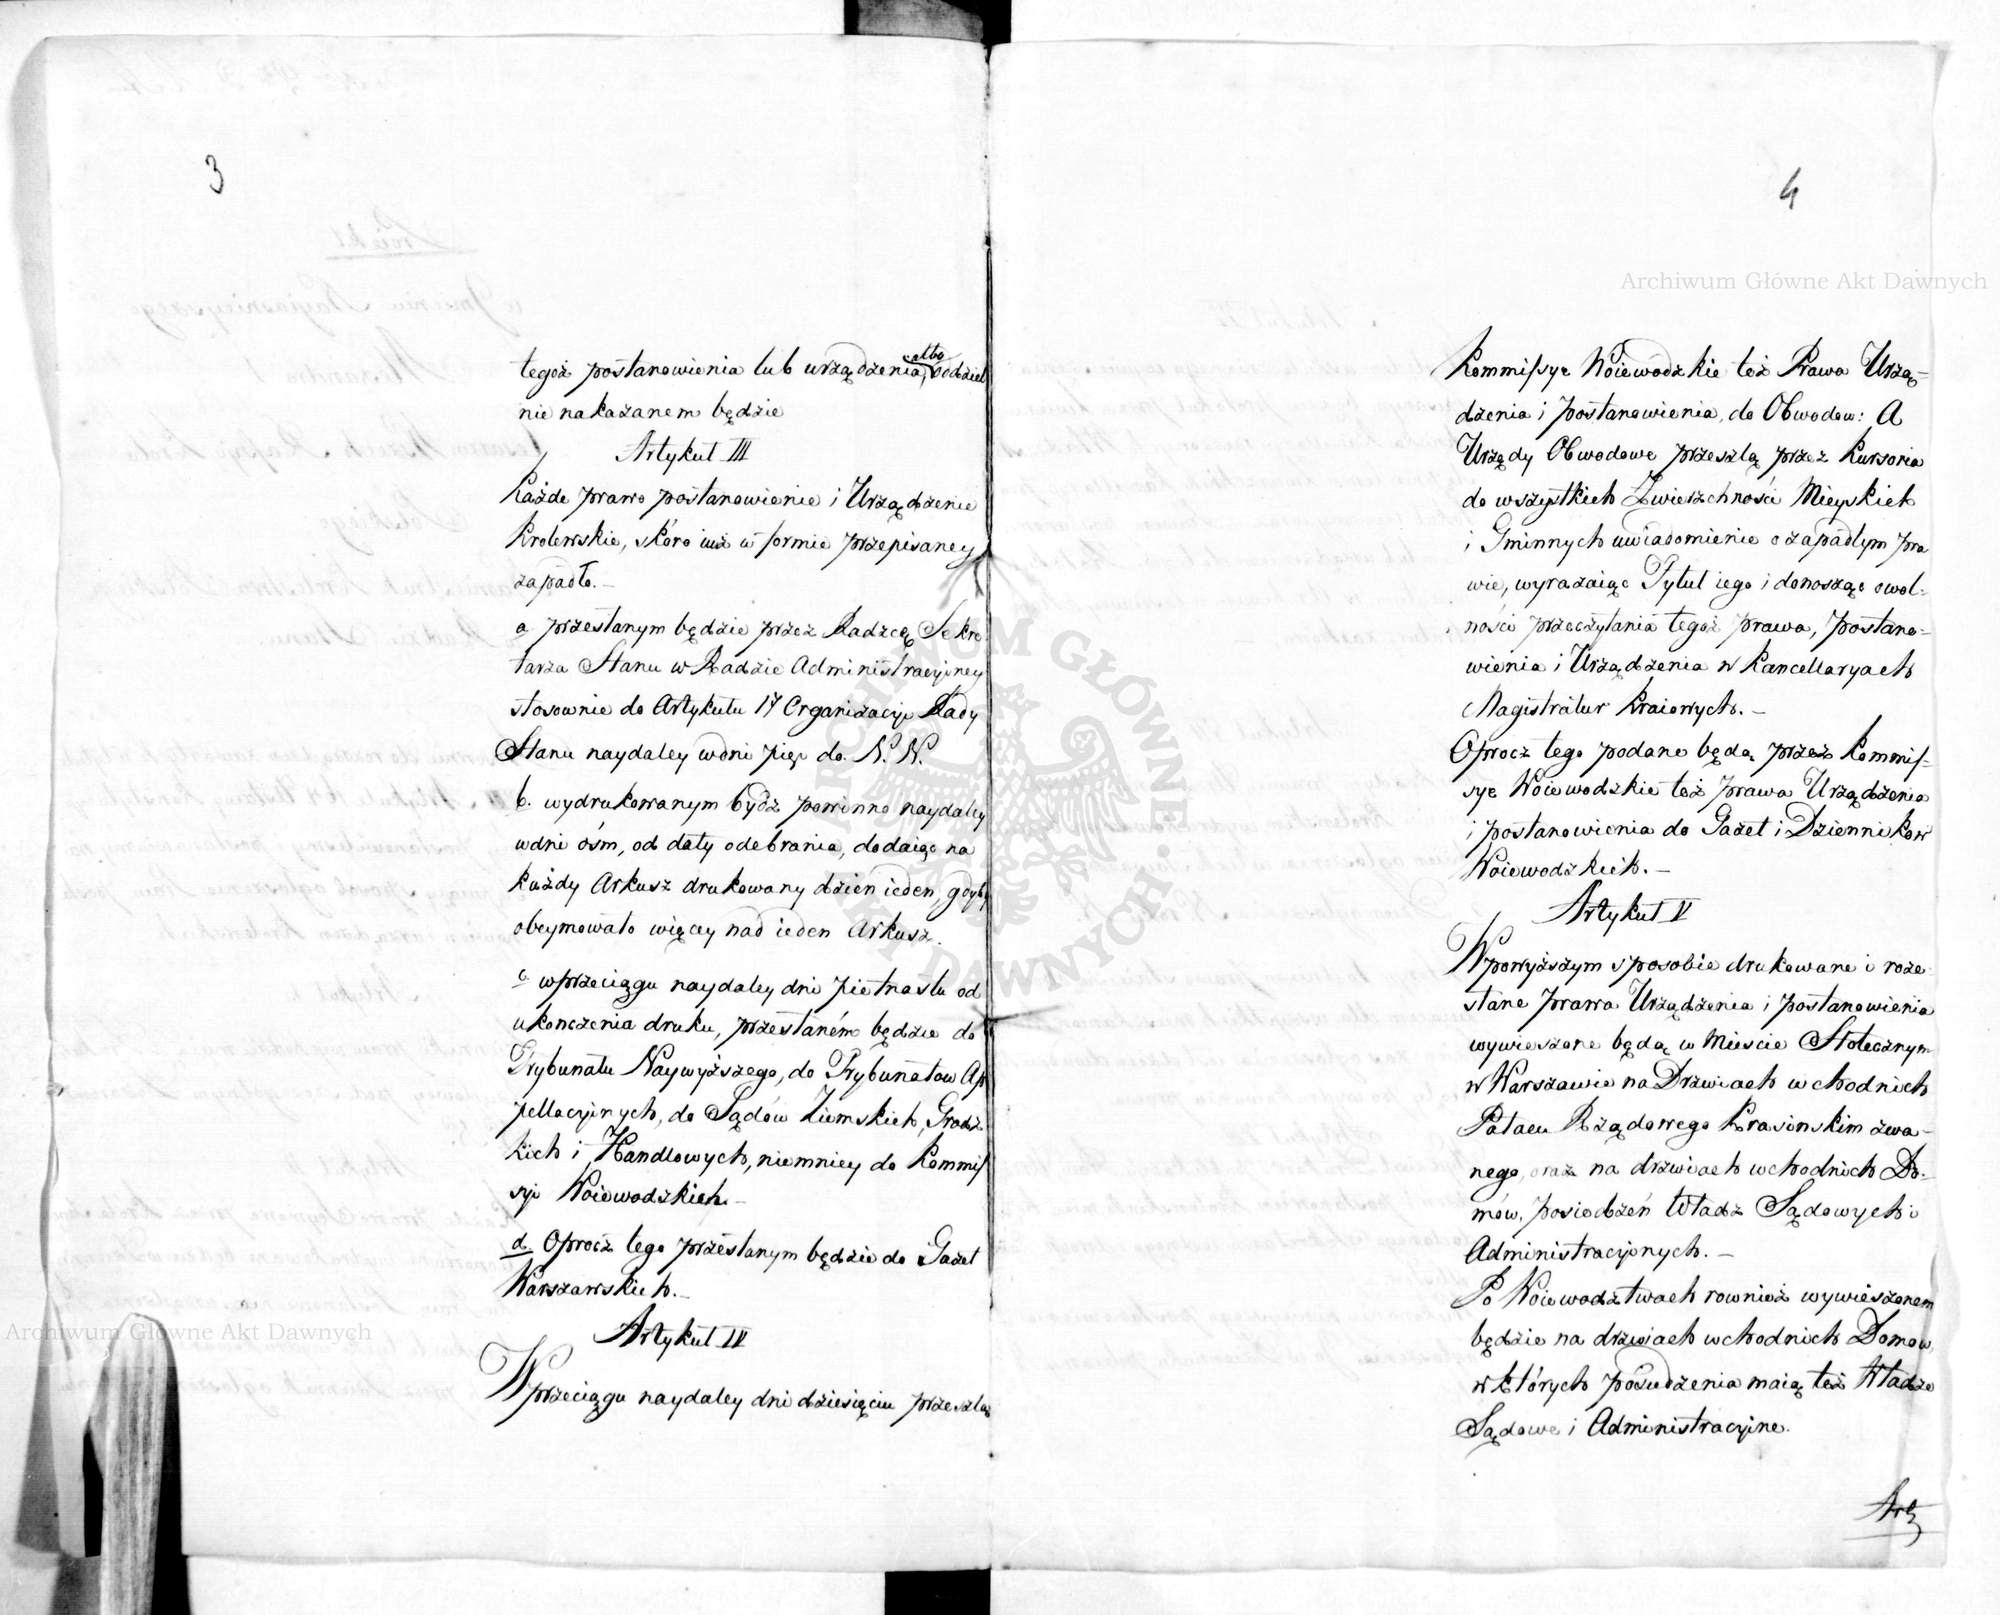 3
tegoż postanowienia lub urządzenia, albo oddziel
nie nakazanem będzie
Artykuł III
Każde prawo postanowienie i Urządzenie
Krolewskie, skoro iuż w formie przepisaney
zapadło.—
a przesłanym będzie przez Radzcę Sekre
tarza Stanu w Radzie Administracyiney
stosownie do Artykułu 17 Organizacyi Rady
Stanu naydaley w dni pięć do. N. N.
b. wydrukowanym bydź powinno naydaley
w dni ósm, od daty odebrania, dodaiąc na
każdy Arkusz drukowany dzień ieden, gdyby
obeymowało więcey nad ieden Arkusz.
c. w przeciągu naydaley dni piętnastu od
ukończenia druku, przesłaném będzie do
Trybunału Naywyższego, do Trybunałow Ap
pellacyinych, do Sądów Ziemskich, Grodz
kich i Handlowych, niemniey do Kommis
syi Woiewodzkich.—
d. Oprocz tego przesłanym będzie do Gazet
Warszawskich.—
Artykuł IV
W przeciągu naydaley dni dziesięciu prześzlą
4
Kommissye Woiewodzkie też Prawa Urzą=
dzenia i postanowienia, do Obwodow: A
Urzędy Obwodowe prześzlą przez Kursoria
do wszystkich Zwierzchności Mieyskich
i Gminnych uwiadomienie o zapadłym pra
wie, wyrażaiąc Tytuł iego i donosząc o wol=
ności przeczytania tegoż prawa, postano=
wienia i Urządzenia w Kancellaryach
Magistratur Kraiowych.—
Oprocz tego podane będą przez Kommis=
sye Woiewodzkie też prawa Urządzenia
i postanowienia do Gazet i Dziennikow
Woiewodzkich.—
Artykuł V
W powyższym sposobie drukowane i roze
słane prawa Urządzenia i postanowienia
wywieszone będą w Mieście Stołecznym
w Warszawie na Drzwiach wchodnich
Pałacu Rządowego Krasinskim zwa=
nego, oraz na drzwiach wchodnich Do=
mów, posiedzeń Władz Sądowych i
Administracyinych.—
Po Woiewodztwach rownież wywieszonem
będzie na drzwiach wchodnich Domow,
w których posiedzenia maią też Władze
Sądowe i Administracyine.
Art
Archiwum Główne Akt Dawnych
Archiwum Główne Akt Dawnych
ARCHIWUM GŁÓWNE AKT DAWNYCH